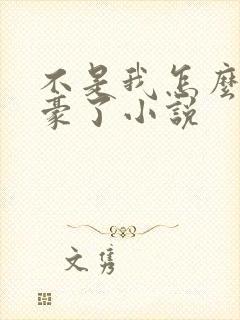 不是我怎麼
豪了小説
文雋